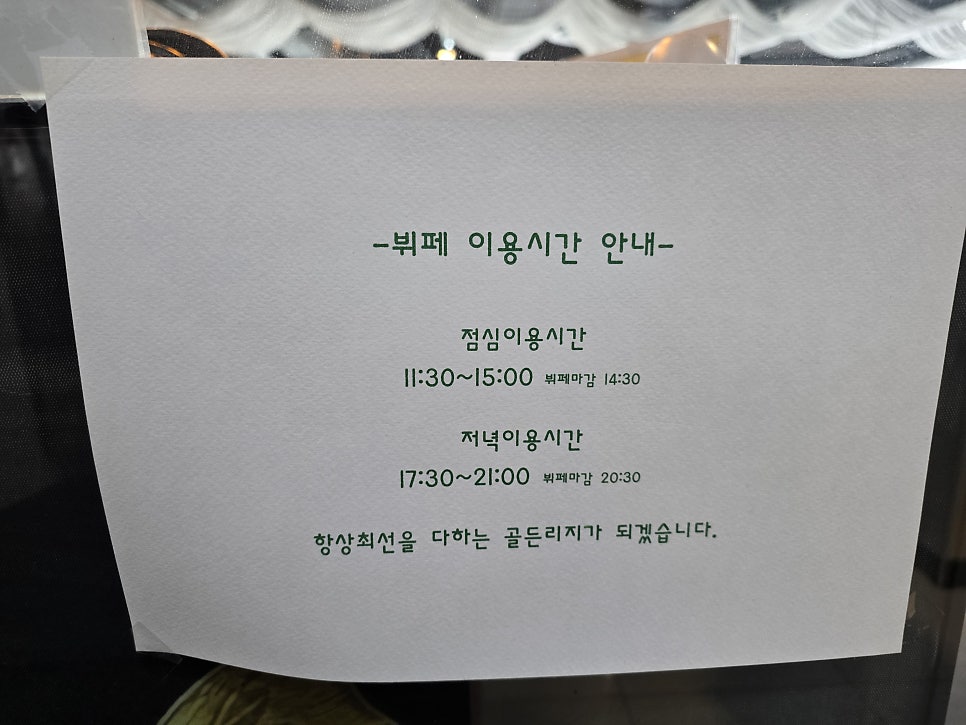 -뷔페 이용시간 안내-
점심이용시간
11:30~15:00 뷔페마감 14:30
저녁이용시간
17:30~21:00 뷔페마감 20:30
항상최선을 다하는 골든리지가 되겠습니다.